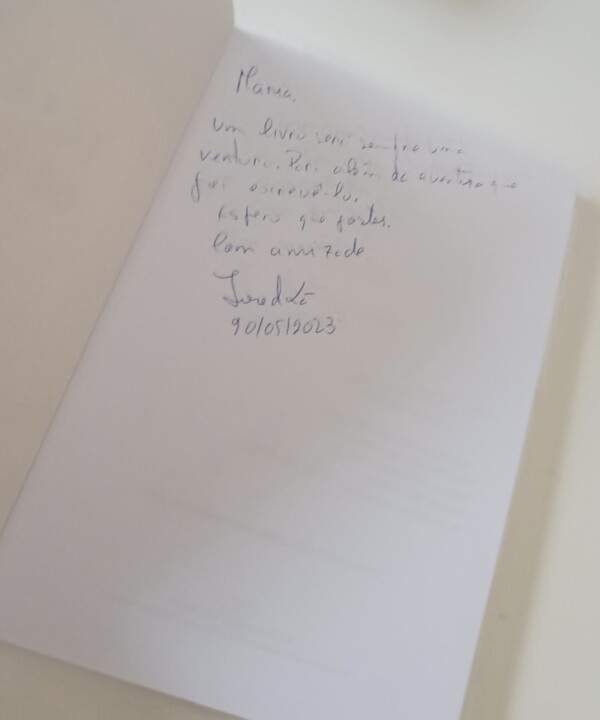 um livro será sempre uma
ventura. Para além da aventura que
foi escrevê-lo.
Espero que gostes.
Com amizade
20/05/2023